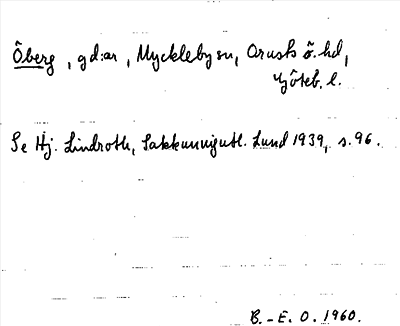 Öberg, gd:ar, Myckleby sn, Orusts ö. hd,
Göteb. l.
Se Hj. Lindroth, Sakkunnigutl. Lund 1939, s. 96.
B.-E. O. 1960.